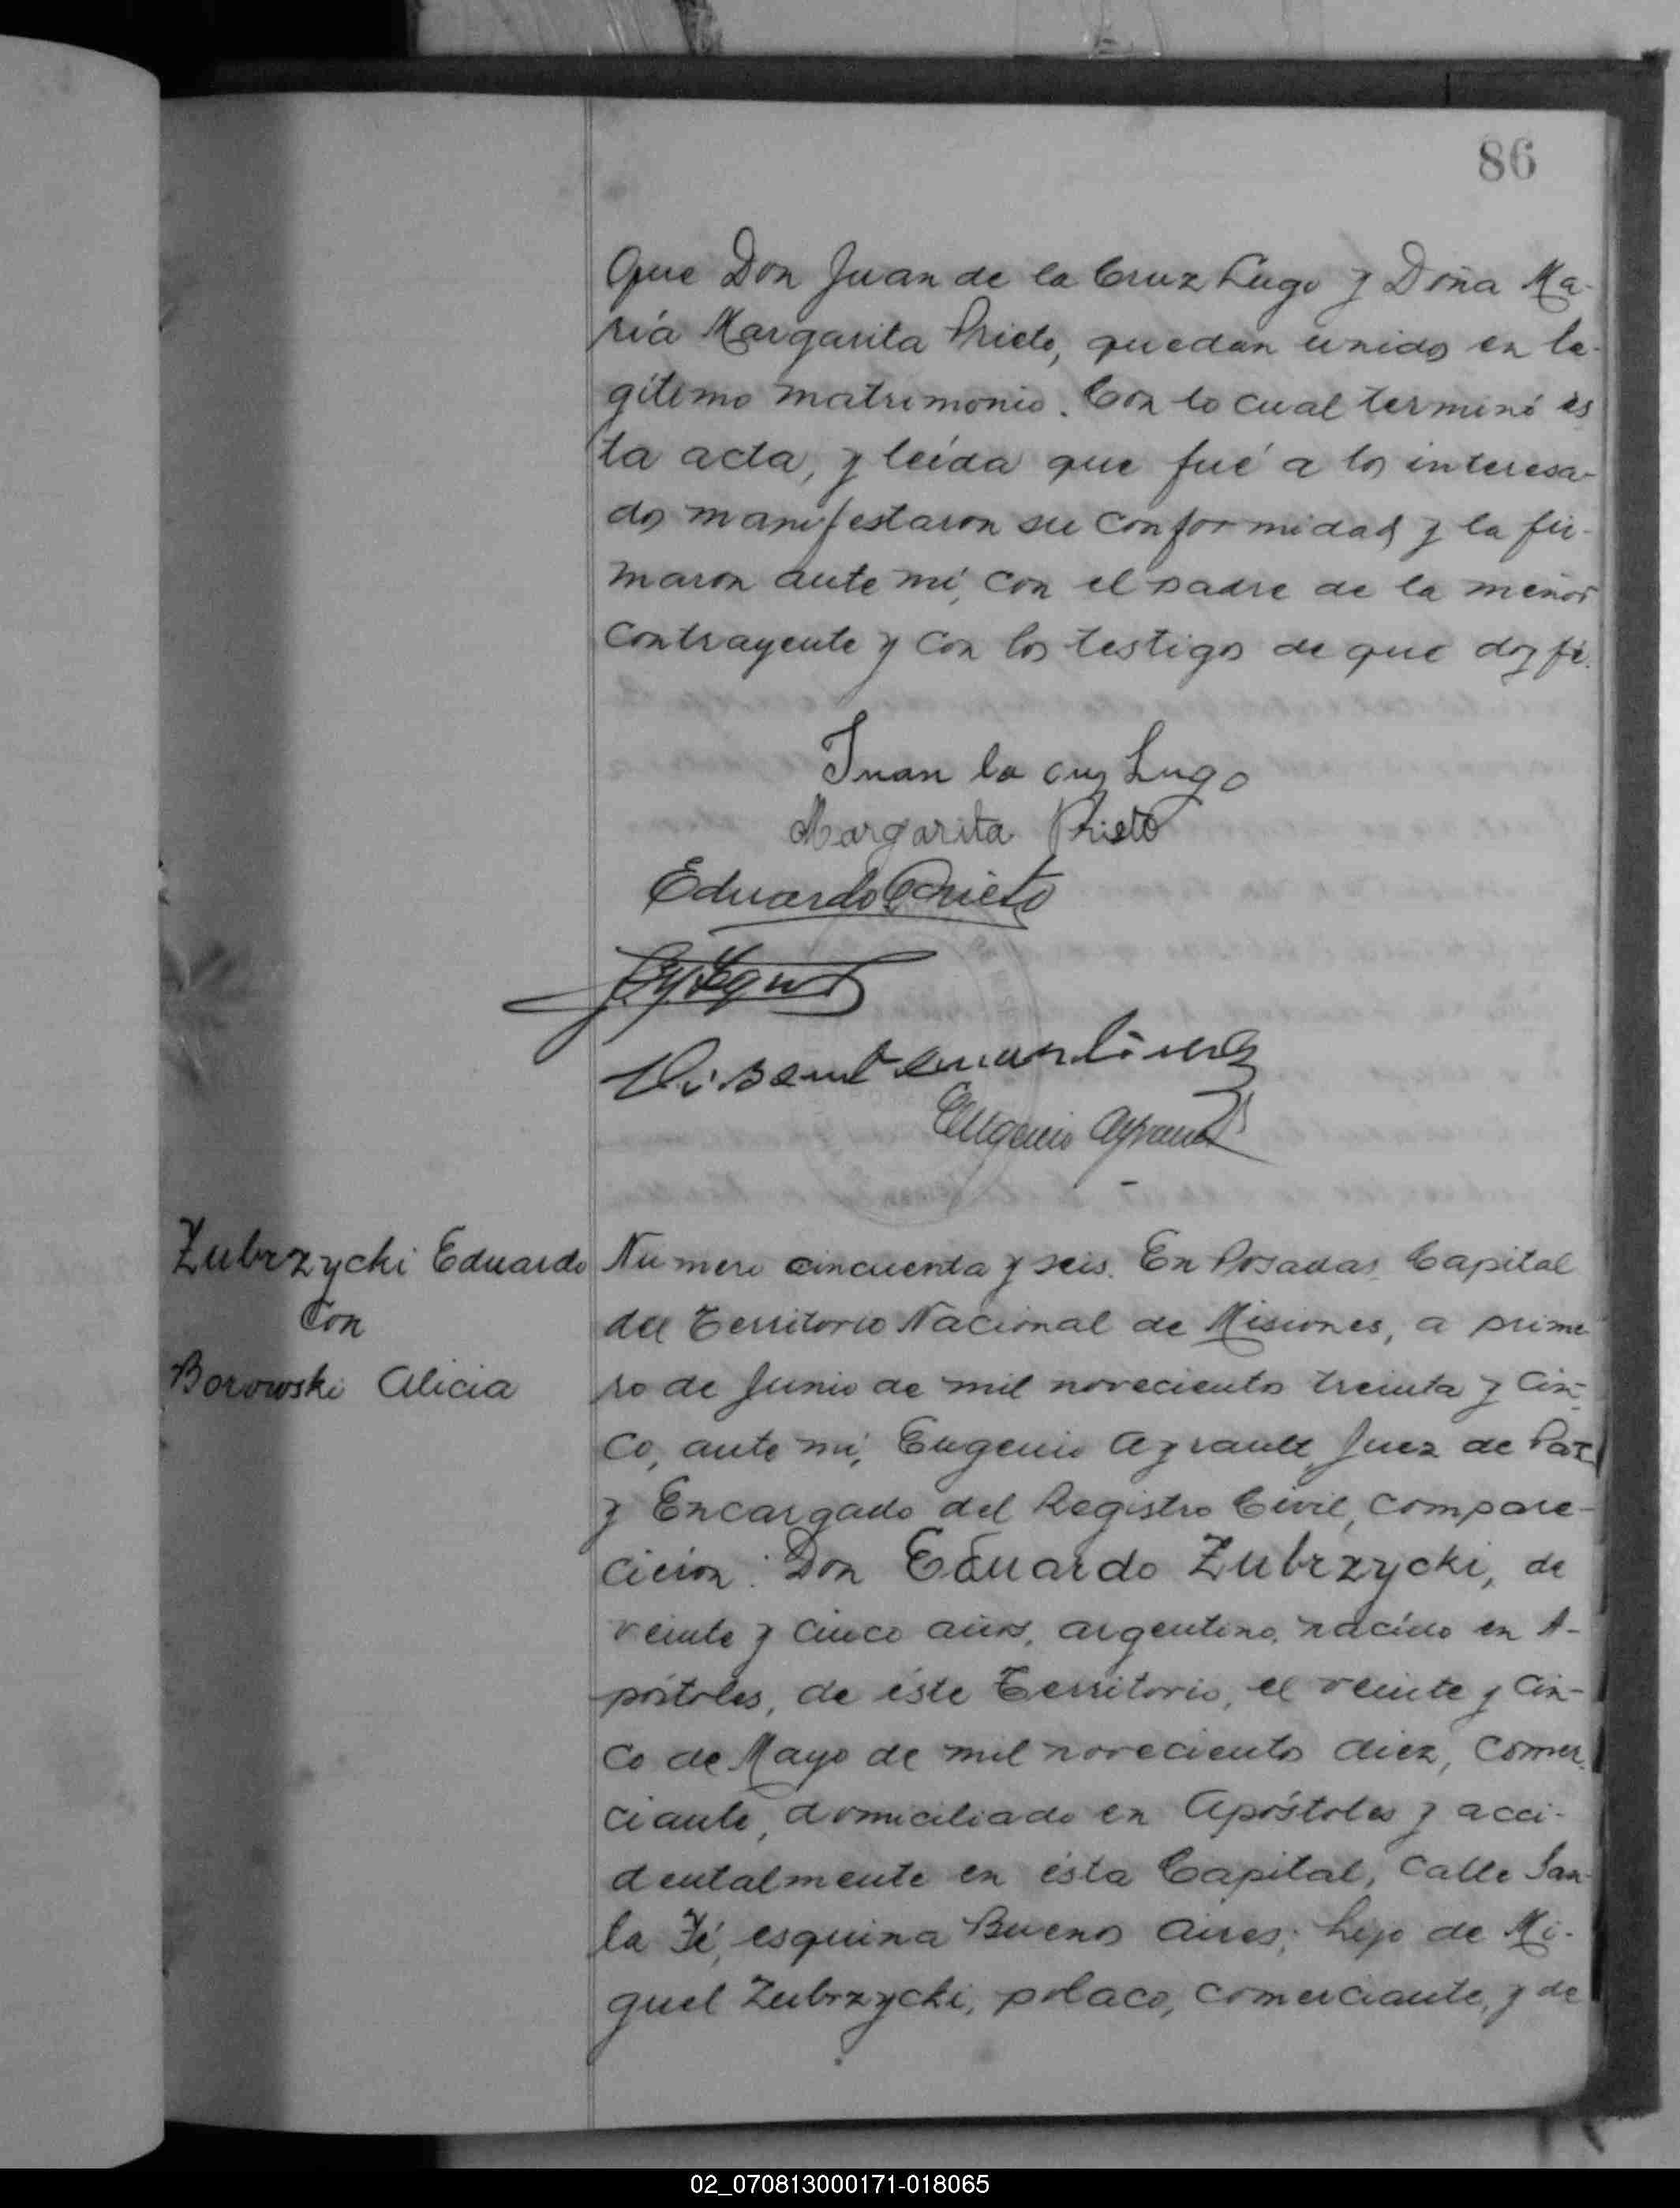 86
Que Don Juan de la Cruz Lugo y Doña Ma-
ría Margarita Prieto, quedan unidos en le-
gítimo matrimonio. Con lo cual terminó es
ta acta, y leída que fué a los interesa-
dos manifestaron su conformidad y la fir-
maron ante mí, con el padre de la menor
contrayente y con los testigos de que doy fé.
Juan la cruz Lugo
Margarita Prieto
Eduardo Prieto
Eugenio Ayrault
Zubrzycki Eduardo
con
Borowski Alicia
Número cincuenta y seis. En Posadas, Capital
del Territorio Nacional de Misiones, a prime
ro de Junio de mil novecientos treinta y cin-
co, ante mí, Eugenio Ayrault, Juez de Paz
y Encargado del Registro Civil, compare-
cieron: Don Eduardo Zubrzycki, de
veinte y cinco años, argentino, nacido en A-
póstoles, de éste Territorio, el veinte y cin-
co de Mayo de mil novecientos diez, comer
ciante, domiciliado en Apóstoles y acci-
dentalmente en ésta Capital, calle San-
ta Fé, esquina Buenos Aires; hijo de Mi-
guel Zubrzycki, polaco, comerciante, y de
02_070813000171-018065